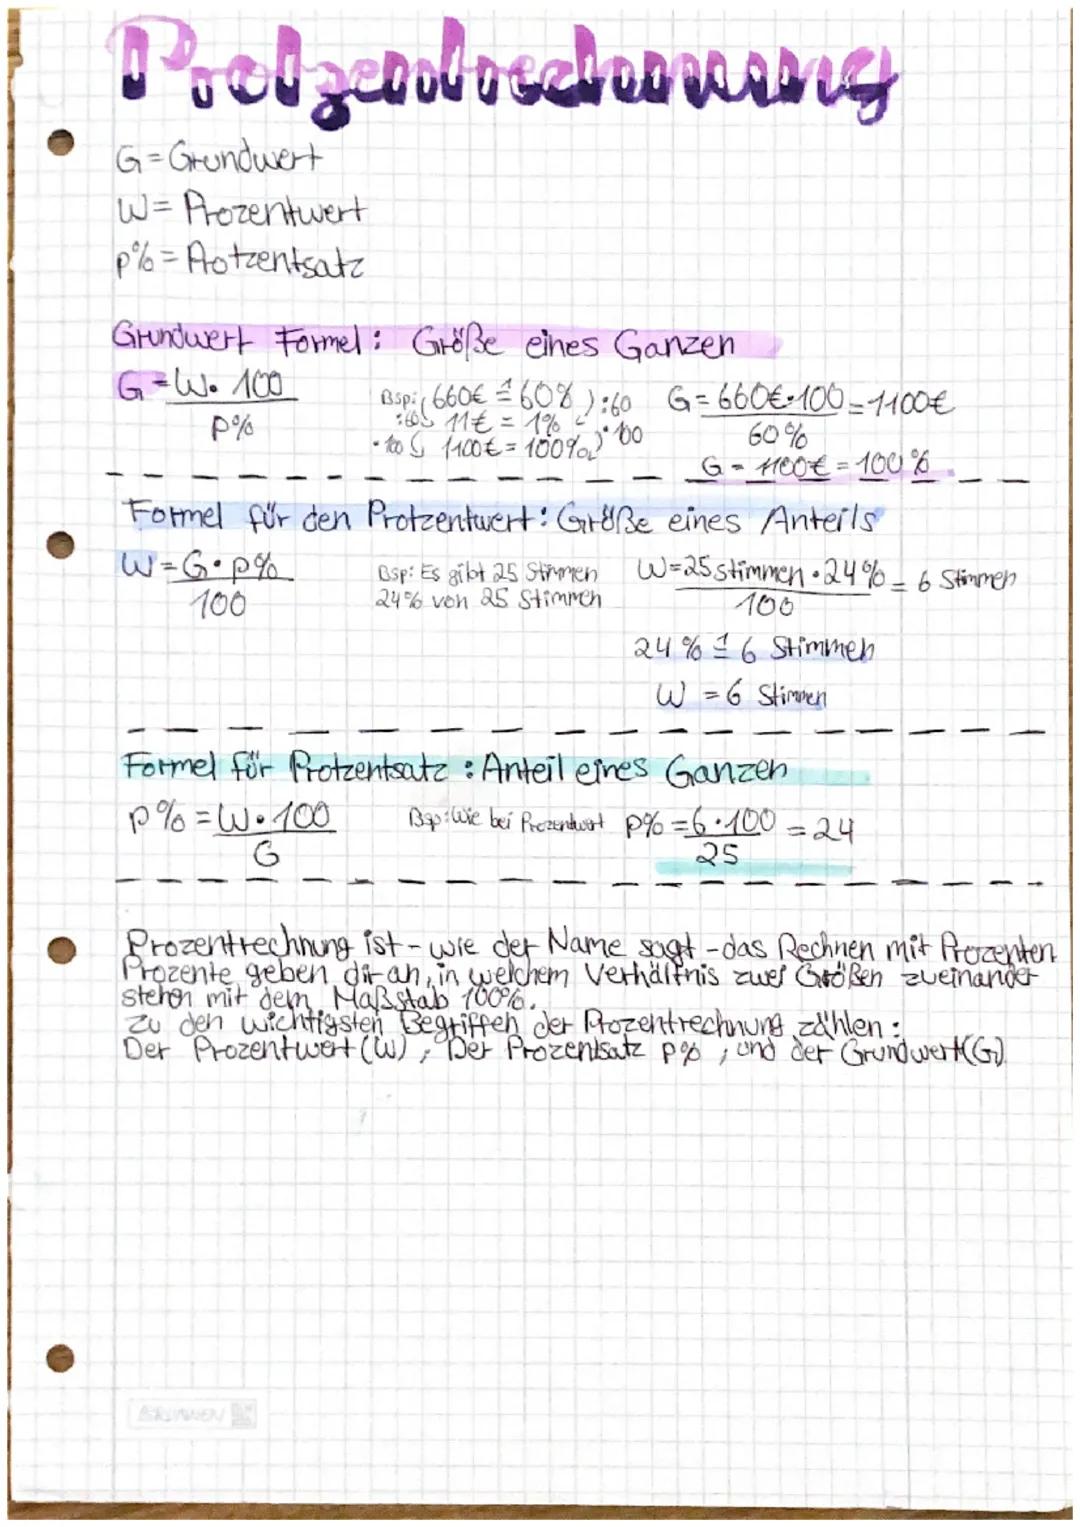 Protzentrechnung
G = Grundwert
W = Prozentwert
p% = Protzentsatz
Grundwert Formel: Größe eines Ganzen
G = W · 100
p%
Bsp: 660€ ≙ 60% :60
:60 11€ = 1% · 100
· 100 1100€ = 100%
G = 660€·100 = 1100€
60%
G = 1100€ = 100%
Formel für den Protzentwert: Größe eines Anteils
W = G · p%
100
Bsp: Es gibt 25 Stimmen
24% von 25 Stimmen
W = 25 stimmen · 24% = 6 Stimmen
100
24% ≙ 6 Stimmen
W = 6 Stimmen
Formel für Protzentsatz: Anteil eines Ganzen
p% = W · 100
G
Bsp: Wie bei Prozentwert
p% = 6 · 100 = 24
25
Prozentrechnung ist - wie der Name sagt - das Rechnen mit Prozenten
Prozente geben dir an, in welchem Verhältnis zwei Größen zueinander
stehen mit dem Maßstab 100%.
Zu den wichtigsten Begriffen der Prozentrechnung zählen:
Der Prozentwert (W), Der Prozentsatz p%, und der Grundwert (G).
BRUNNEN